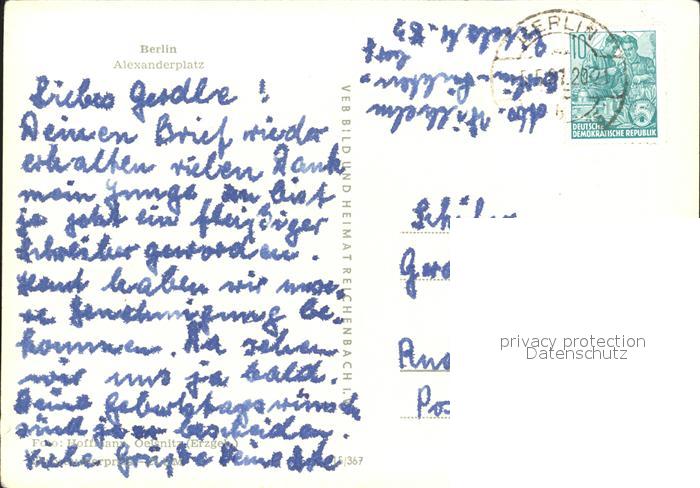 Berlin
Alexanderplatz
Liebes Gerdle!
Deinen Brief wieder
erhalten vielen Dank
mein Junge du bist
ja jetzt ein fleißiger
Schreiber geworden.
Heut haben wir unse-
re Genehmigung be-
kommen. Da sehen
wir uns ja bald.
Deine Geburtstagswünsche
sind ja bescheiden.
Viele Grüße Deine
Foto: Hoffmann, Oelsnitz (Erzgeb.)
/367
VEB BILD UND HEIMAT REICHENBACH I.
Abs. Wilhelm
Berlin
BERLIN
10
DEUTSCHE
DEMOKRATISCHE REPUBLIK
Schüler
Ger
privacy protection
Datenschutz